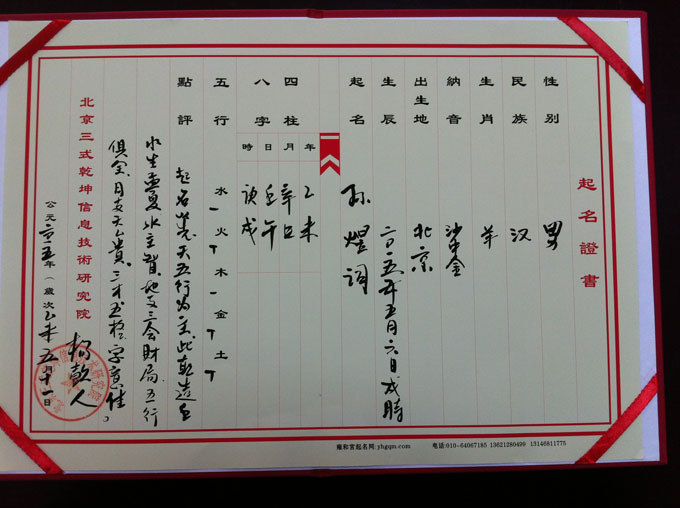 起名證書
性别 男
民族 汉
生肖 羊
納音 沙中金
出生地 北京
生辰 二〇一五年五月六日戌時
起名 孙熠词
四柱 八字
年 月 日 時
乙未 辛巳 壬午 庚戌
五行 水一火丅木一金丅土丅
點評 起名先天五行为主此乾造壬
水生孟夏水主智地支三会财局五行
俱全日支天貴三才五格字意佳。
北京三式乾坤信息技術研究院
公元二〇一五年（歲次乙未五月十一日
雍和宫起名网:yhgqm.com 电话:010-64067185 13621280499 13146811775